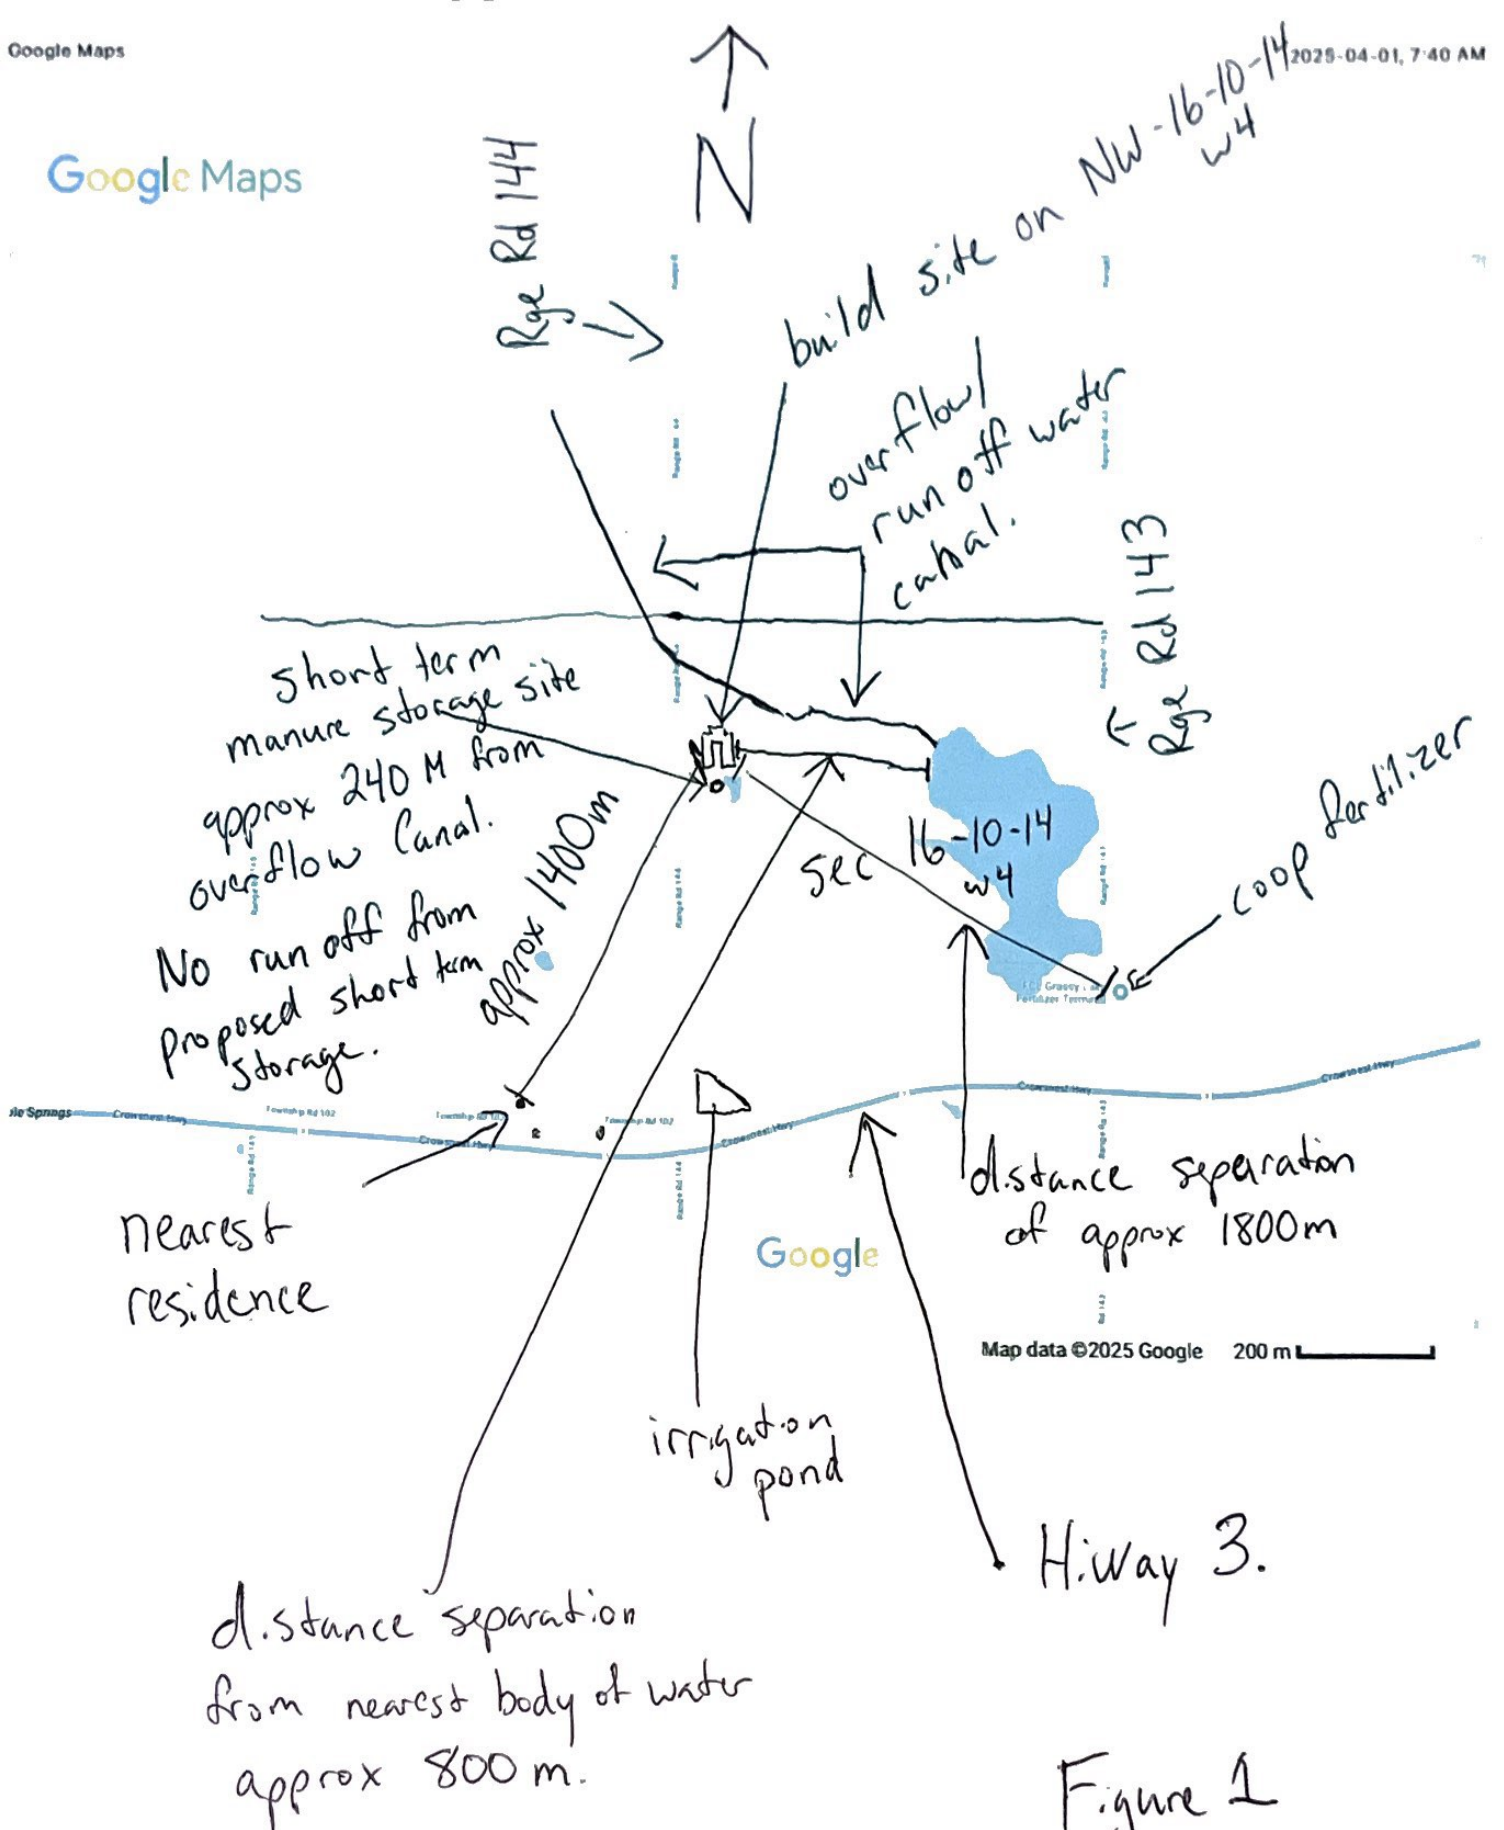 Google Maps
2025-04-01, 7:40 AM
Google Maps
N
Rge Rd 144
build site on NW-16-10-14
W4
overflow/
run off water
canal.
Rge Rd 143
short term
manure storage site
approx 240 M from
overflow Canal.
No run off from
proposed short term
storage.
approx 1400m
Sec
16-10-14
W4
coop fertilizer
Grassy
Fertilizer
Range Rd 144
Range Rd 143
Springs
Crowsnest Hwy
Township Rd 102
Crowsnest Hwy
Township Rd 102
Crowsnest Hwy
Crowsnest Hwy
Crowsnest Hwy
Range Rd 144
Rd 143
nearest
residence
distance separation
of approx 1800m
Google
Map data ©2025 Google
200 m
irrigation
pond
HiWay 3.
distance separation
from nearest body of water
approx 800 m.
Figure 1